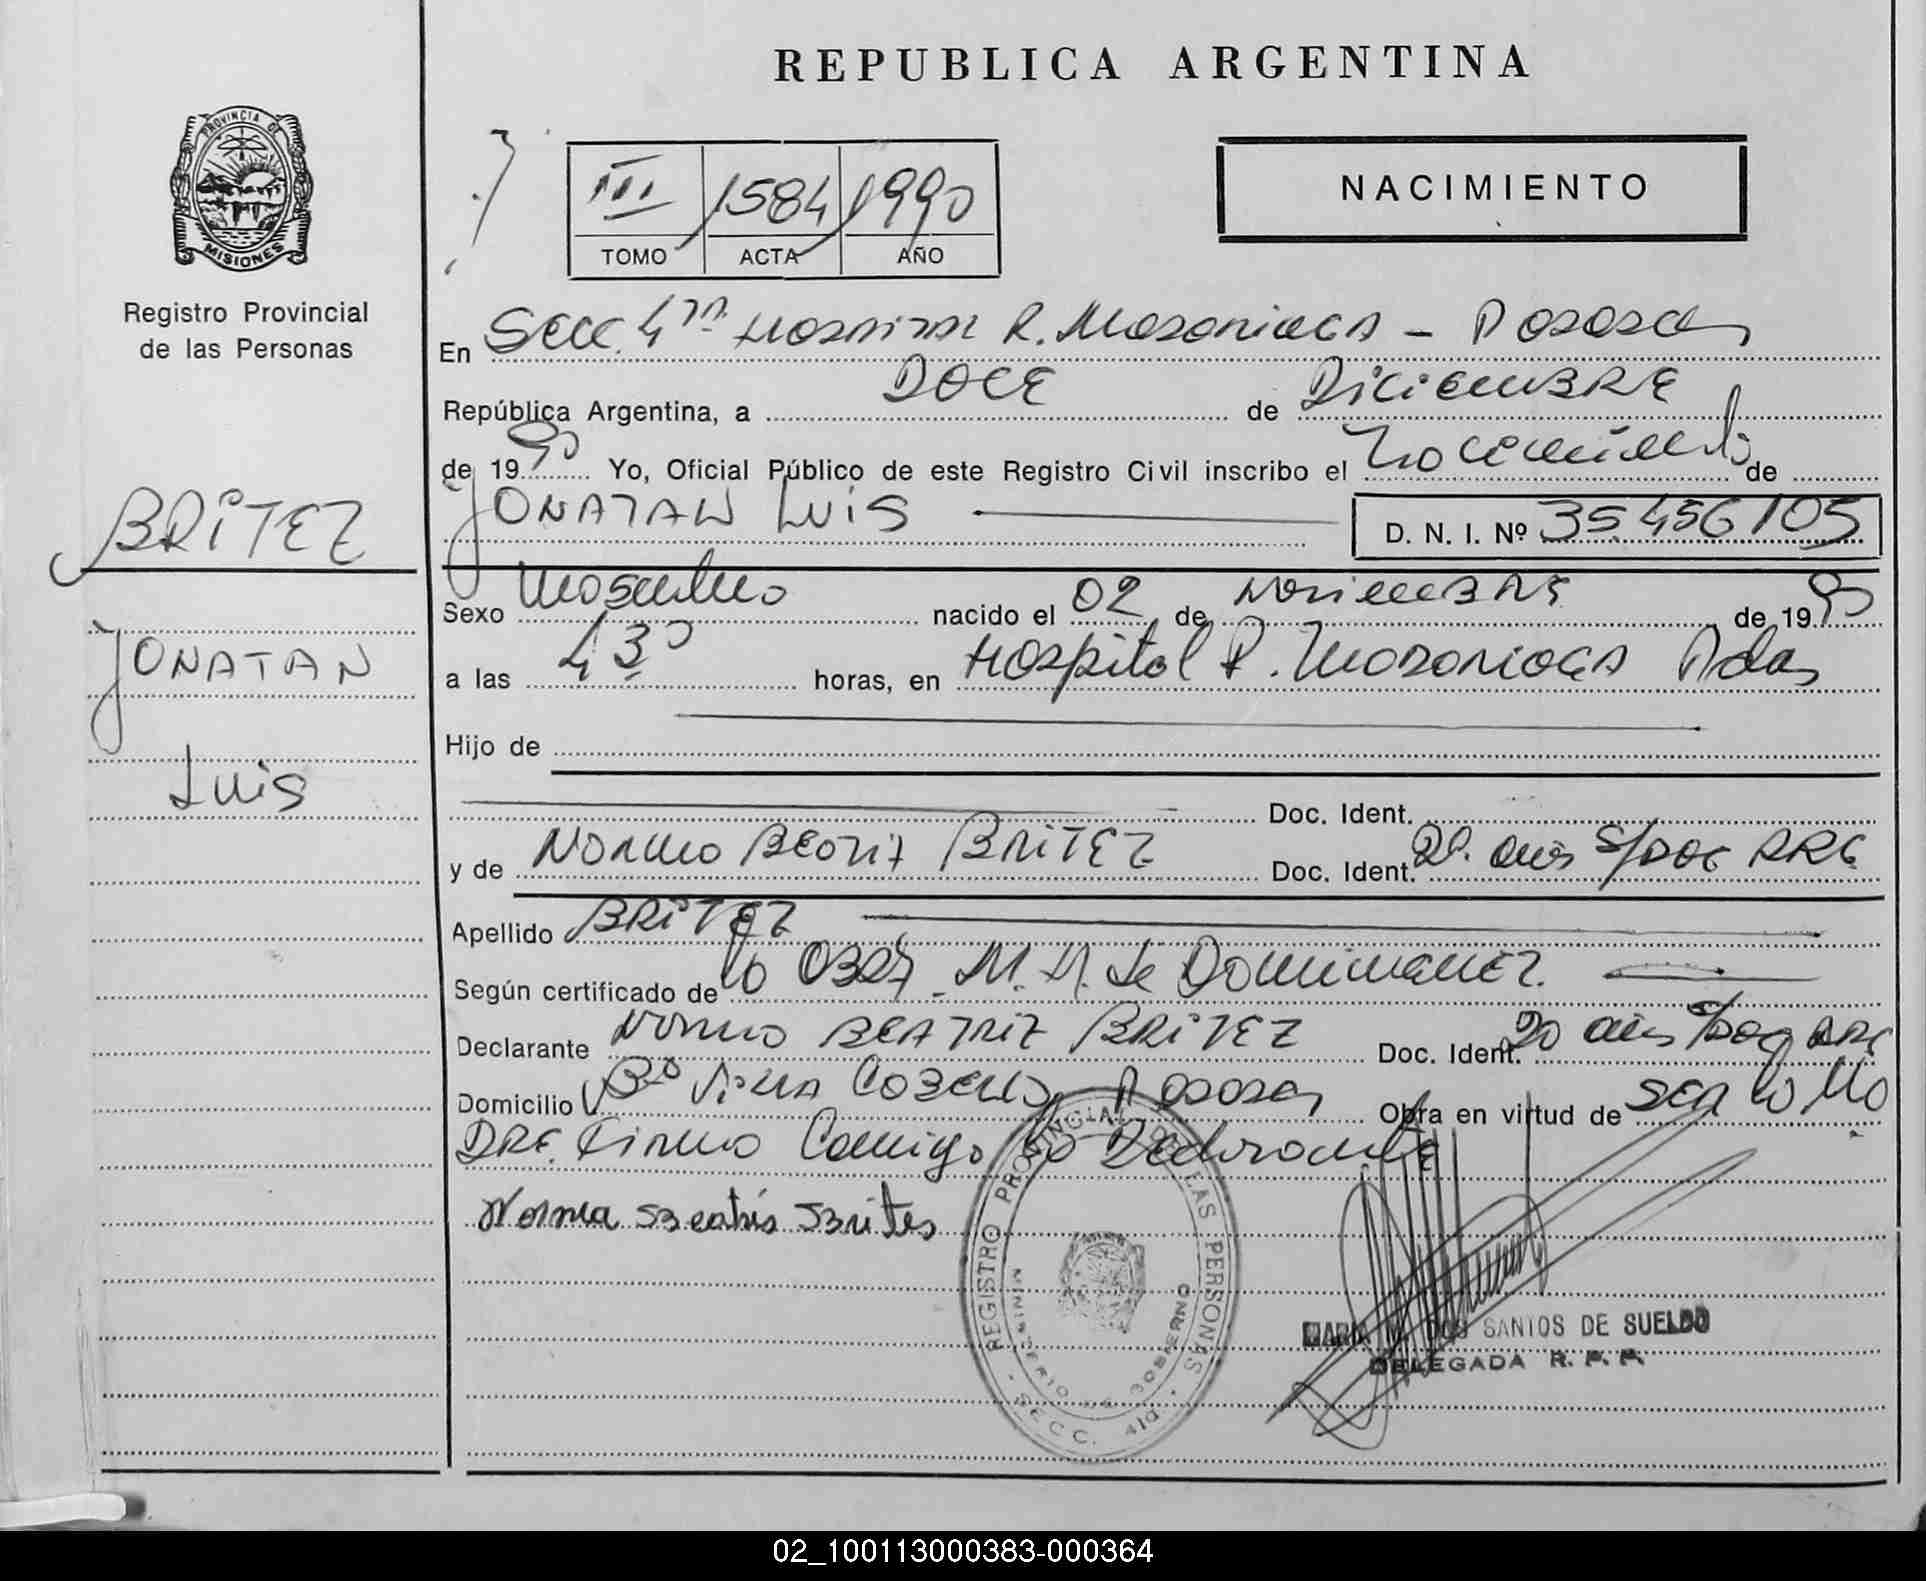 REPUBLICA ARGENTINA
PROVINCIA DE
MISIONES
Registro Provincial
de las Personas
III 1584 1990
TOMO ACTA AÑO
NACIMIENTO
En Secc. 4ta Hospital R. Madariaga - Posadas
República Argentina, a DOCE de DICIEMBRE
de 1990 Yo, Oficial Público de este Registro Civil inscribo el Nacimiento de
JONATAN LUIS D. N. I. Nº 35.456105
BRITEZ
JONATAN
LUIS
Sexo Masculino nacido el 02 de NOVIEMBRE de 1990
a las 4 30 horas, en Hospital R. Madariaga Pdas
Hijo de
Doc. Ident.
y de Norma Beatriz BRITEZ Doc. Ident. 20 años S/DOC ARG
Apellido BRITEZ
Según certificado de la Obst. M. M. de Dominguez.
Declarante Norma BEATRIZ BRITEZ Doc. Ident. 20 años S/Doc ARG
Domicilio Bº Villa Posadas Obra en virtud de SER la
DRE. Firma Conmigo la Declarante
Norma Beatris Brites
REGISTRO PROVINCIAL DE LAS PERSONAS
MINISTERIO DE GOBIERNO
SECC. 4ta.
DOS SANTOS DE SUELDO
DELEGADA R. P. P.
02_100113000383-000364